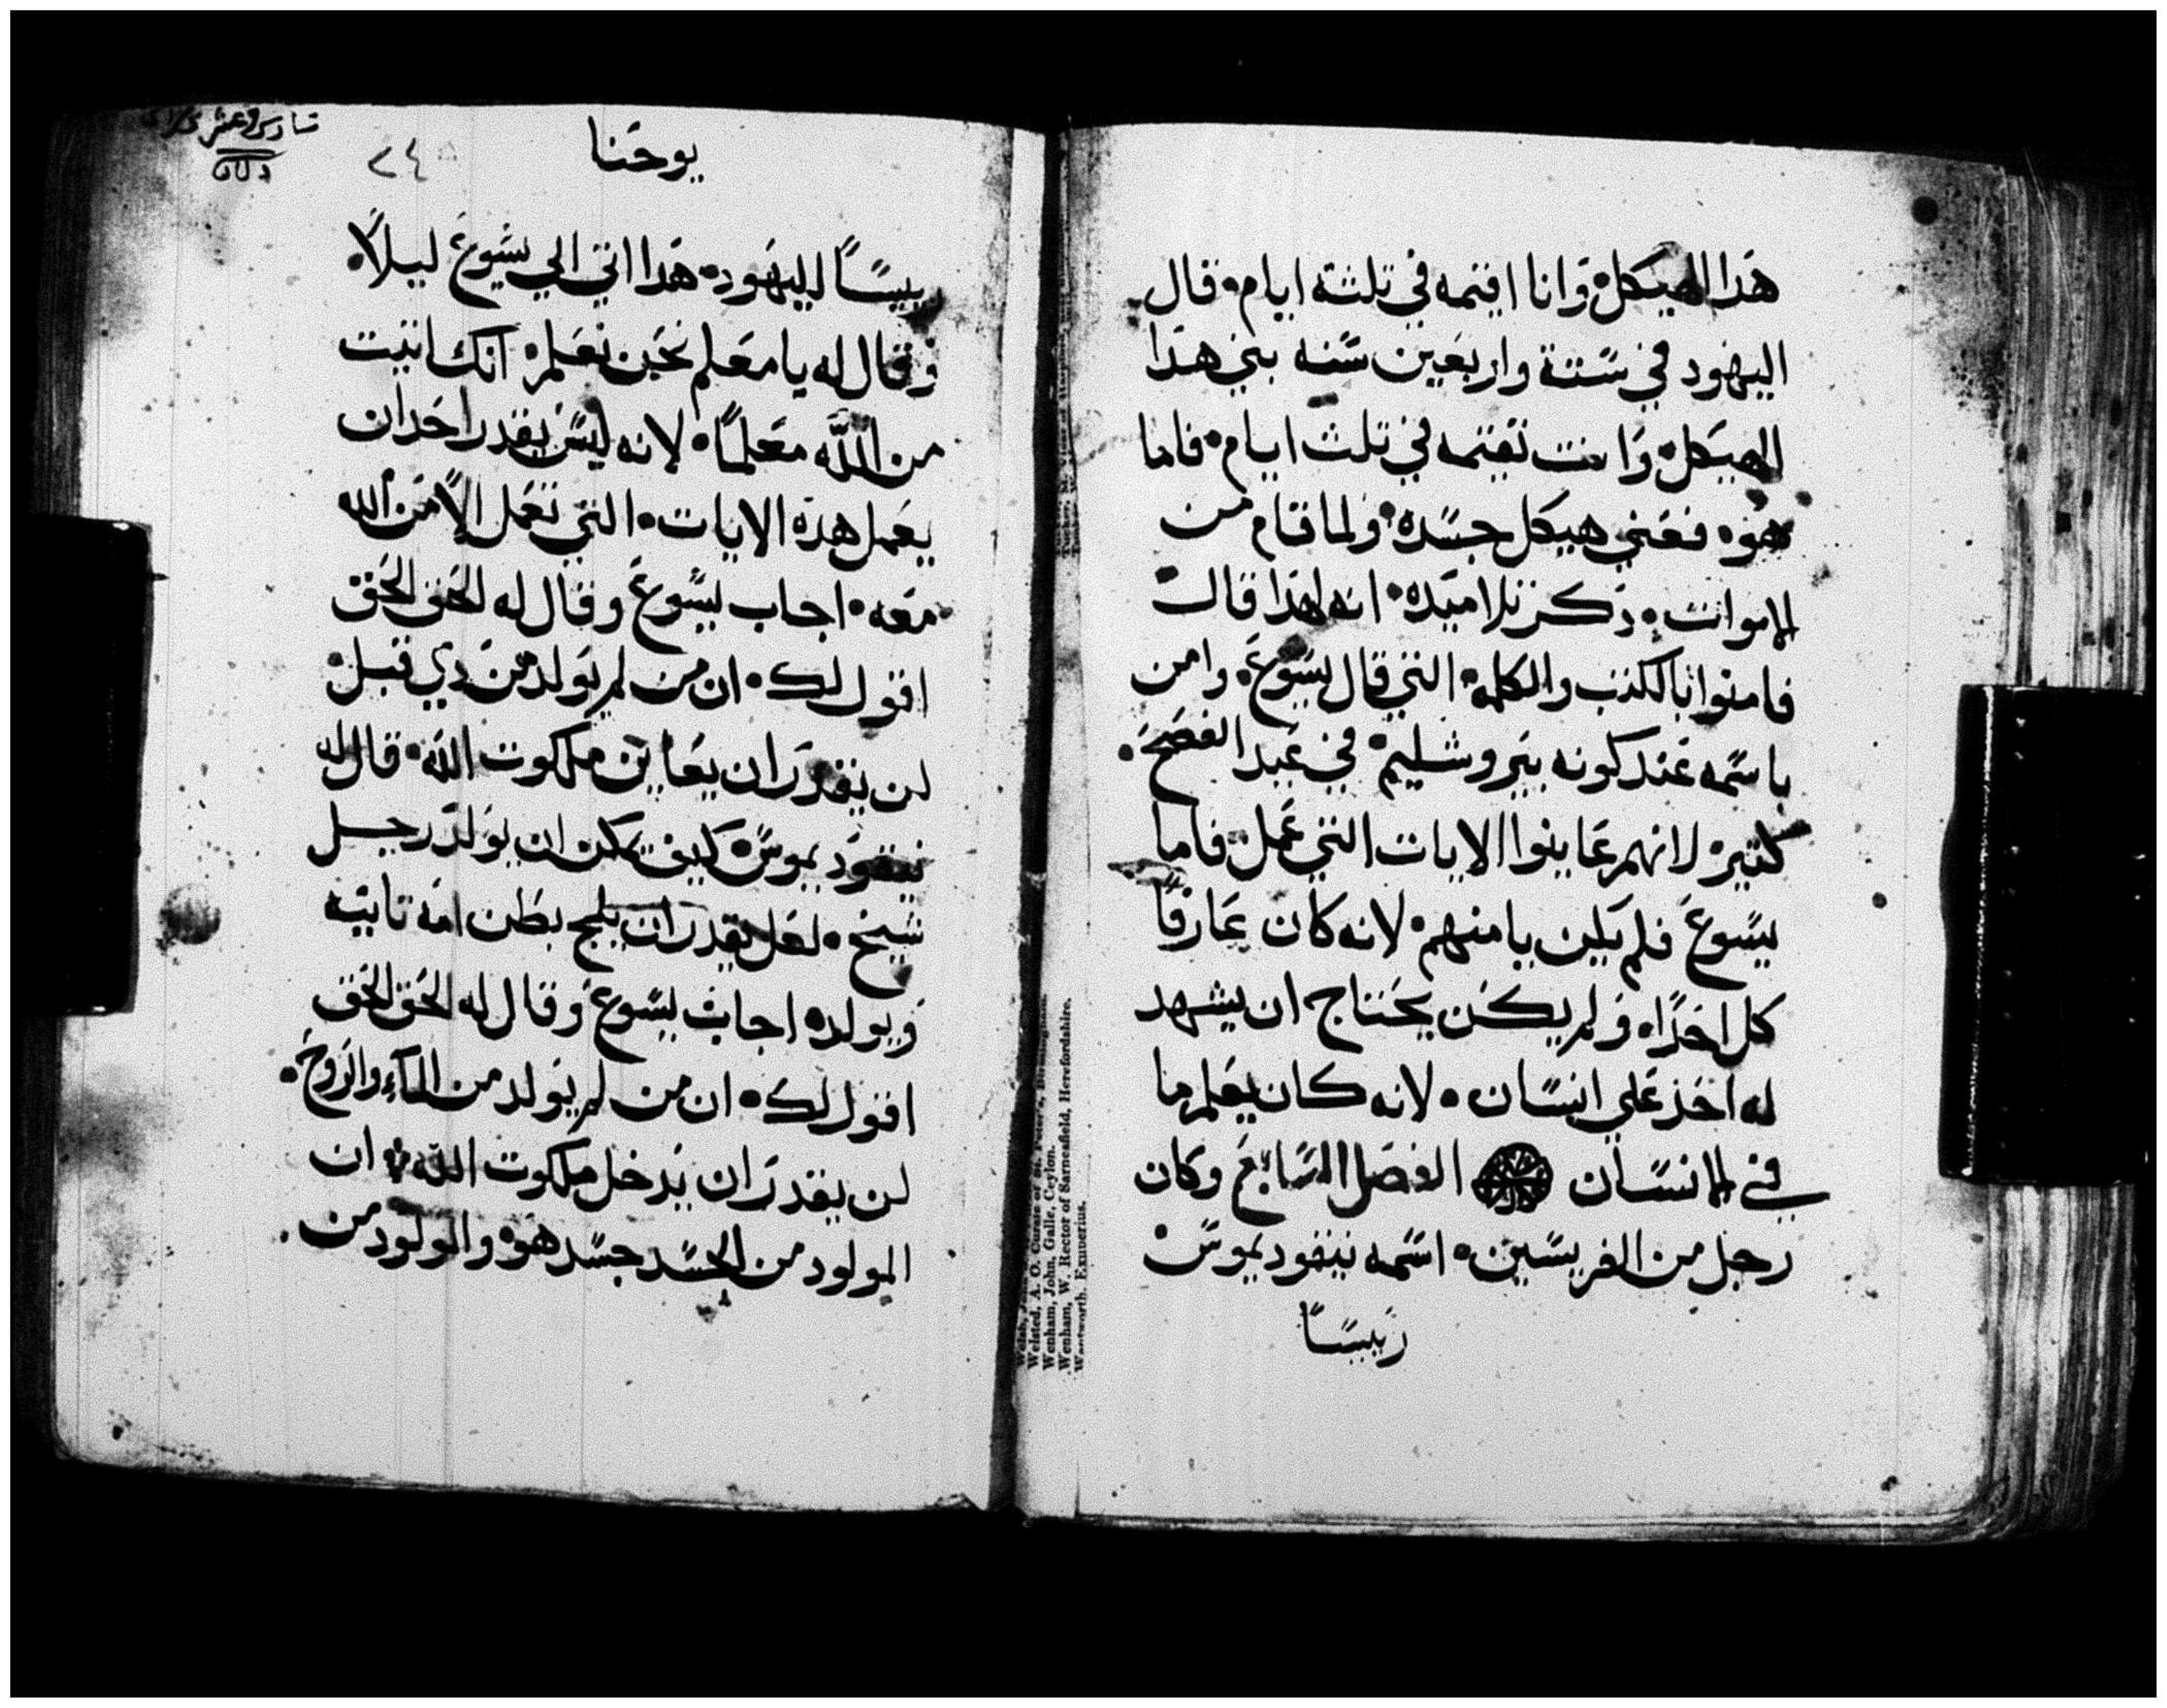 هذا الهيكل وانا اقيمه في تلثة ايام قال
اليهود في ستة واربعين سنه بني هذا
الهيكل وانت تقيمه في تلث ايام فاما
هو فعني هيكل جسده ولما قام من
الاموات دكر تلاميده انه لهذا قال
فامنوا بالكتب والكلمه التي قال يسوع وامن
باسمه عند كونه بيروشليم في عيد الفصح
كتير لانهم عاينوا الايات التي عمل فاما
يسوع فلم يكن يامنهم لانه كان عارفا
كل احدا ولم يكن يحتاج ان يشهد
له احد علي انسان لانه كان يعلم ما
في الانسان الفصل السابع وكان
رجل من الفريسين اسمه نيقوديموس
رييسا
يوحنا
٢٤
رييسا لليهود هذا اتي الي يسوع ليلا
وقال له يا معلم نحن نعلم انك اتيت
من الله معلما لانه ليس يقدر احد ان
يعمل هذه الايات التي تعمل الا من الله
معه اجاب يسوع وقال له الحق الحق
اقول لك ان من لم يولد من دي قبل
لن يقدر ان يعاين ملكوت الله قال له
نيقوديموس كيف يمكن ان يولد رجل
شيخ لعل يقدر ان يلج بطن امه تانيه
ويولد اجاب يسوع وقال له الحق الحق
اقول لك ان من لم يولد من الماء والروح
لن يقدر ان يدخل ملكوت الله ان
المولود من الجسد جسد هو والمولود من
Welsted, A. O. Curate of St.
Wenham, John, Galle, Ceylon.
Wenham, W. Rector of Sarnesfield, Herefordshire.